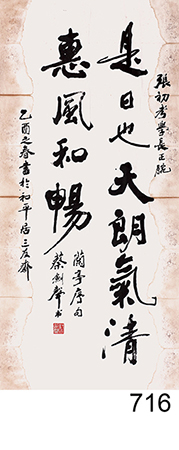 張初考學長正腕
是日也天朗氣清
惠風和暢
蘭亭序句
蔡劍聲書
乙酉之春書於和平居三左齋
716